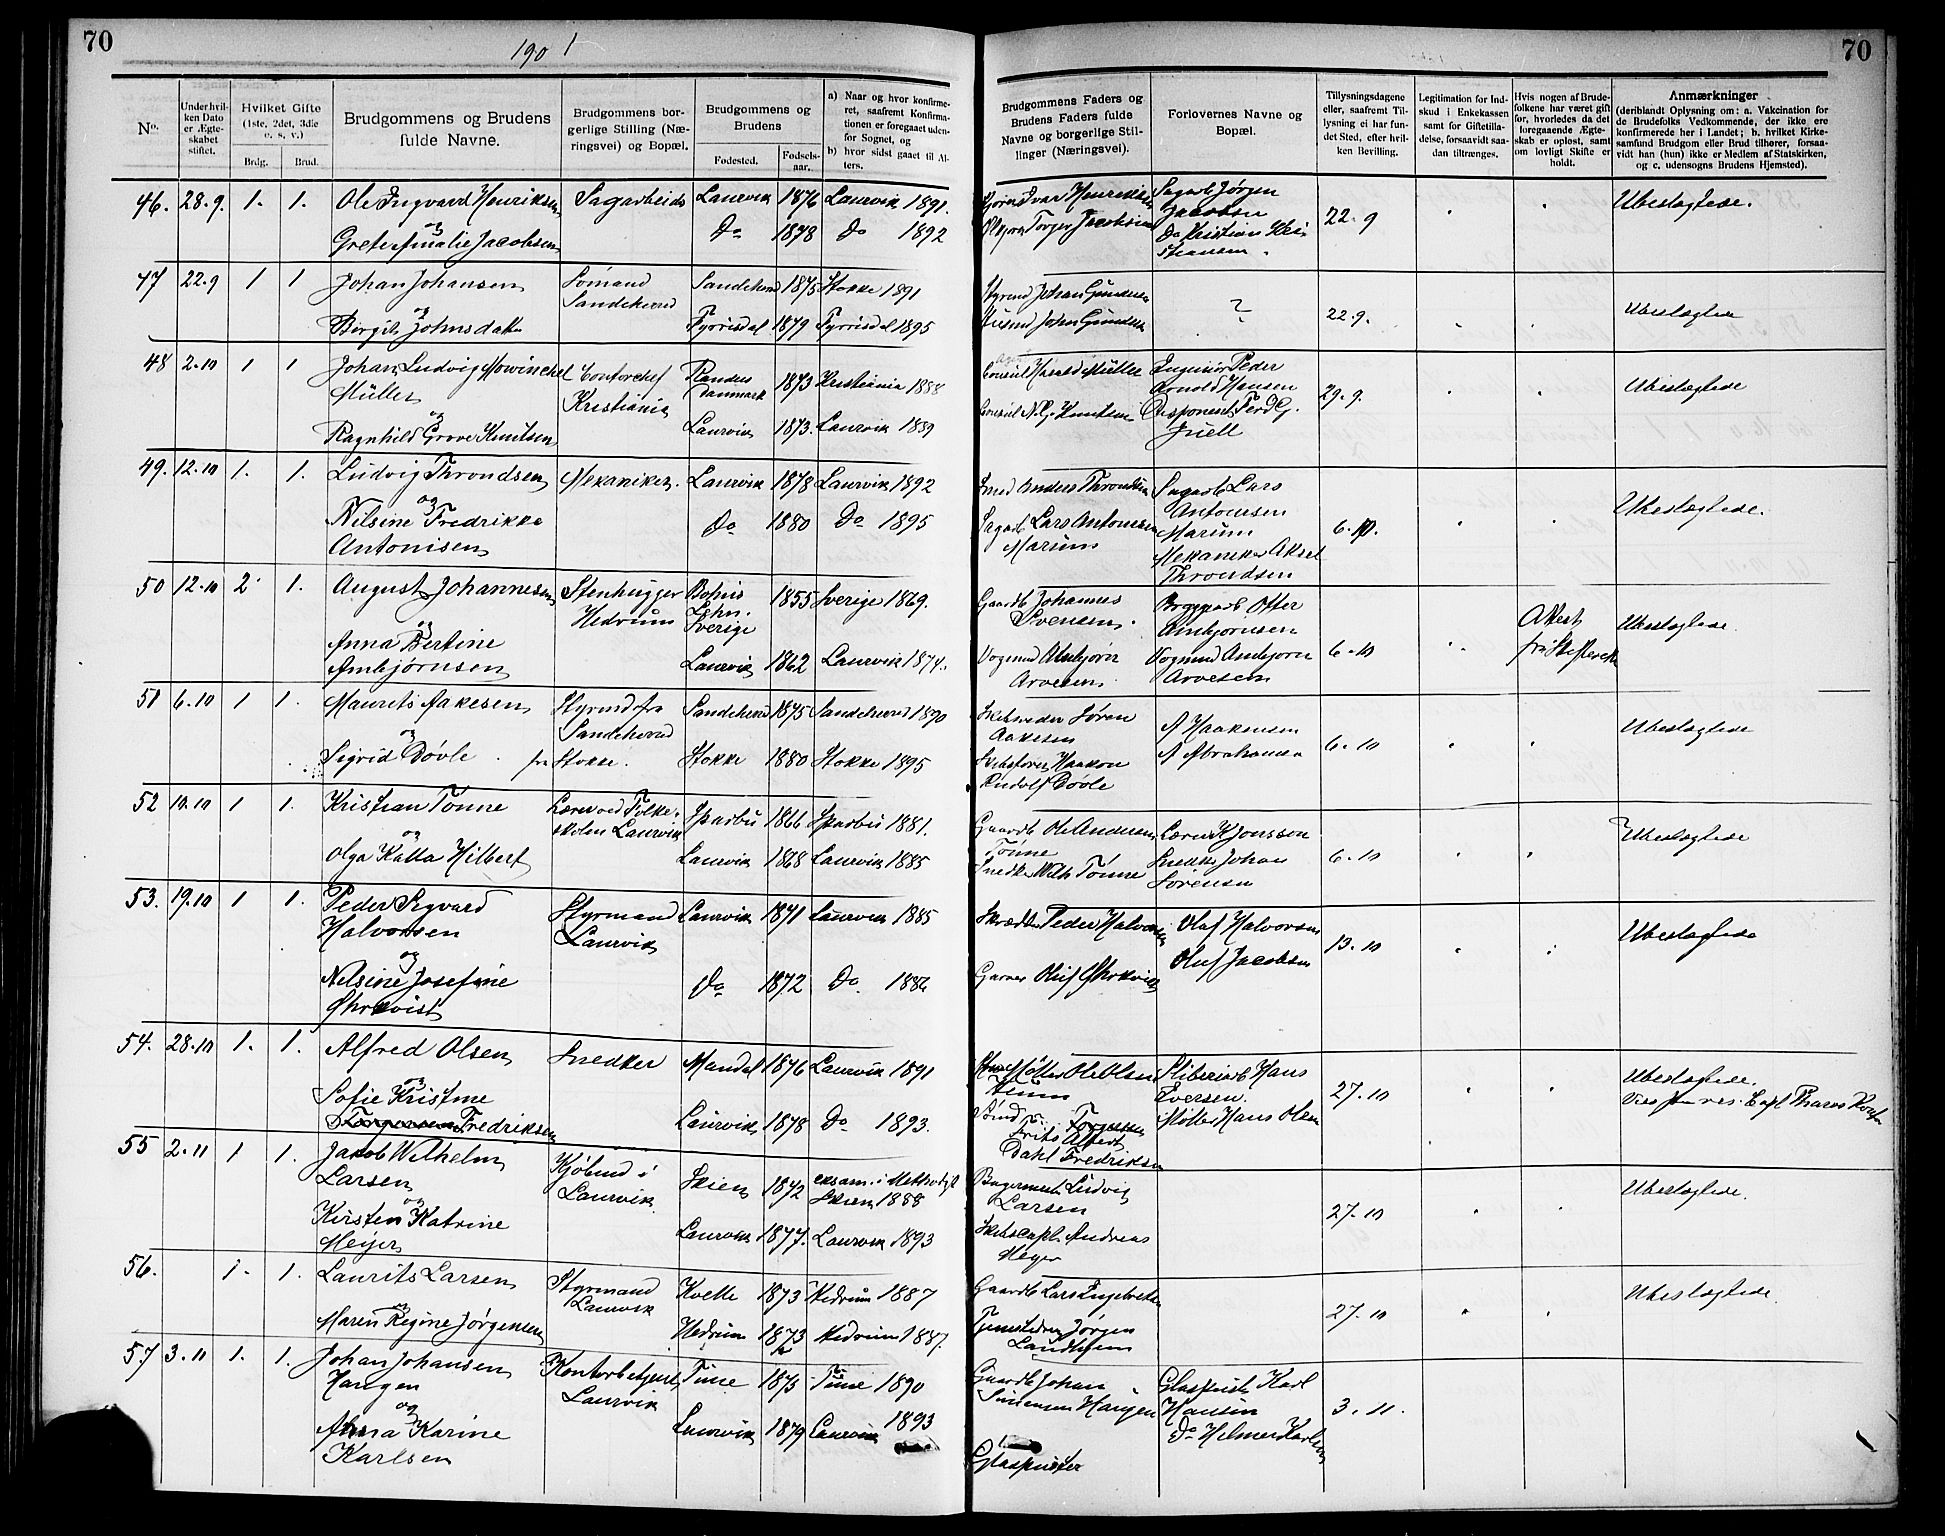 70
1901
70
No.
Under hvilken Dato er Ægteskabet stiftet.
Hvilket Gifte (1ste, 2det, 3die o. s. v.)
Brdg.
Brud.
Brudgommens og Brudens fulde Navne.
Brudgommens borgerlige Stilling (Næringsvei) og Bopæl.
Brudgommens og Brudens
Fødested.
Fødselsaar.
a) Naar og hvor konfirmeret, saafremt Konfirmationen er foregaaet udenfor Sognet, og
b) hvor sidst gaaet til Alters.
Brudgommens Faders og Brudens Faders fulde Navne og borgerlige Stillinger (Næringsvei).
Forlovernes Navne og Bopæl.
Tillysningsdagene eller, saafremt Tillysning ei har fundet Sted, efter hvilken Bevilling.
Legitimation for Indskud i Enkekassen samt for Giftetilladelse, forsaavidt saadan tiltrænges.
Hvis nogen af Brudefolkene har været gift før, hvorledes da det foregaaende Ægteskab er opløst, samt om lovligt Skifte er holdt.
Anmærkninger
(deriblandt Oplysning om: a. Vakcination for de Brudefolks Vedkommende, der ikke ere konfirmerede her i Landet; b. hvilket Kirkesamfund Brudgom eller Brud tilhører, forsaavidt han (hun) ikke er Medlem af Statskirken, og c. udensogns Brudens Hjemsted).
46. 28.9. 1. 1. Ole Ingvard Henriksen Sagarbeids Laurvik 1876 Laurvik 1891. Ivar Henriksen Sagarb Jørgen 22.9 Ubeslægtede.
og Torger Jacobsen Jacobsen
Grete Amalie Jacobsen Do 1878 Do 1892 Do Kristian Kristiansen.
47 22.9 1 1 Johan Johansen Sømand Sandeherred 1875 Stokke 1891 Styrmd Johan Gundersen ? 22.9. Ubeslægtede
og Sandeherred
Birgit Johnsdatter Fyrrisdal 1879 Fyrrisdal 1895 John Gundersen
48 2.10 1 1 Johan Ludvig Mowinckel Contorchef Randers 1873 Kristiania 1888 Consul Harald Müller Ingeniør Peder 29.9. Ubeslægtede
Müller Kristiania Danmark Arnold Hansen
og
Ragnhild Grove Knutsen Laurvik 1873. Laurvik 1889 Consul N. G. Knutsen Disponent Ferd G. Juell
49. 12.10 1. 1. Ludvig Throndsen Mekaniker. Laurvik 1878 Laurvik 1892 Smed Anders Throndsen Sagarb Lars 6.10. Ubeslægtede.
og Antonisen
Nilsine Fredrikke Do 1880 Do 1895 Sagarb Lars Antonisen Marum
Antonisen Marum Mekaniker Aksel
Throndsen
50 12.10 2 1. August Johannesen Stenhugger Bohus 1855 Sverige 1869. Gaardb Johannes Bryggearb Otter 6.10 Attest Ubeslægtede.
og Hedrum Lehn. Svensen. Arnbjørnsen fra Skifteret
Anna Bertine Sverige
Arnbjørnsen Laurvik 1862 Laurvik 1874. Vognmd Arnbjørn Vognmd Arnbjørn
Arvesen. Arvesen
51 6.10 1 1. Maurits Aakesen Styrmd fra Sandeherred 1875 Sandeherred 1890 Skibsreder Søren A Haakensen 6.10 Ubeslægtede
og Sandeherred Aakesen A Abrahamsen
Sigrid Døvle fra Stokke. Stokke 1880 Stokke 1895 Skibsfører Haakon
Rudolf Døvle
52 10.10 1 1. Kristian Tønne Lærer ved Folke- Sparbu 1866 Sparbu 1881. Gaardb Ole Andersen Lærer K Jonsson 6.10 Ubeslægtede
og skolen Laurvik Tønne Snedker Johan
Olga Kalla Hilbert Laurvik 1868 Laurvik 1885 Snedker Wilh Tønne Sørensen
53. 19.10 1 1. Peder Sigvard Styrmand Laurvik 1871 Laurvik 1885 Skrædder Peder Halvorsen Olaf Halvorsen 13.10 Ubeslægtede
Halvorsen Laurvik Oluf Jacobsen
og
Nilsine Josefine Do 1872 Do. 1886 Garver Oluf Øhrkvist
Øhrkvist
54. 28.10 1. 1. Alfred Olsen Snedker Mandal 1876 Laurvik 1891 Møller Ole Olsen Sliberiarb Hans 27.10 Ubeslægtede.
og Eversen. Capt
Sofie Kristine Møller Hans Olsen
Torgersen Fredriksen Laurvik 1878 Do 1893. Sømd Torgersen
Frits Albert
Dahl Fredriksen
55 2.11 1 1. Jakob Wilhelm Kjøbmd i Skien 1872 i Methodist Bagermest. Ludvig 27.10 Ubeslægtede.
Larsen Laurvik Skien 1888 Larsen
og
Kirsten Katrine Laurvik 1877. Laurvik 1893 Skibscapt. Andreas
Meyer Meyer
56. 1. 1. Laurits Larsen Styrmand Kvelle 1873 Hedrum 1887 Gaardb Lars Engebretsen 27.10 Ubeslægtede.
og Laurvik
Maren Regine Jørgensen Hedrum 1873 Hedrum 1887. Jørgen
Landheim
57 3.11 1. 1. Johan Johansen Kontorbetjent Tune 1875 Tune 1890 Gaardb Johan Glaspuster Karl 3.11.
Haugen Laurvik Simensen Haugen Hansen
og
Anna Karine Laurvik 1879 Laurvik 1893 Do Helmer Karlsen
Karlsen Glaspuster